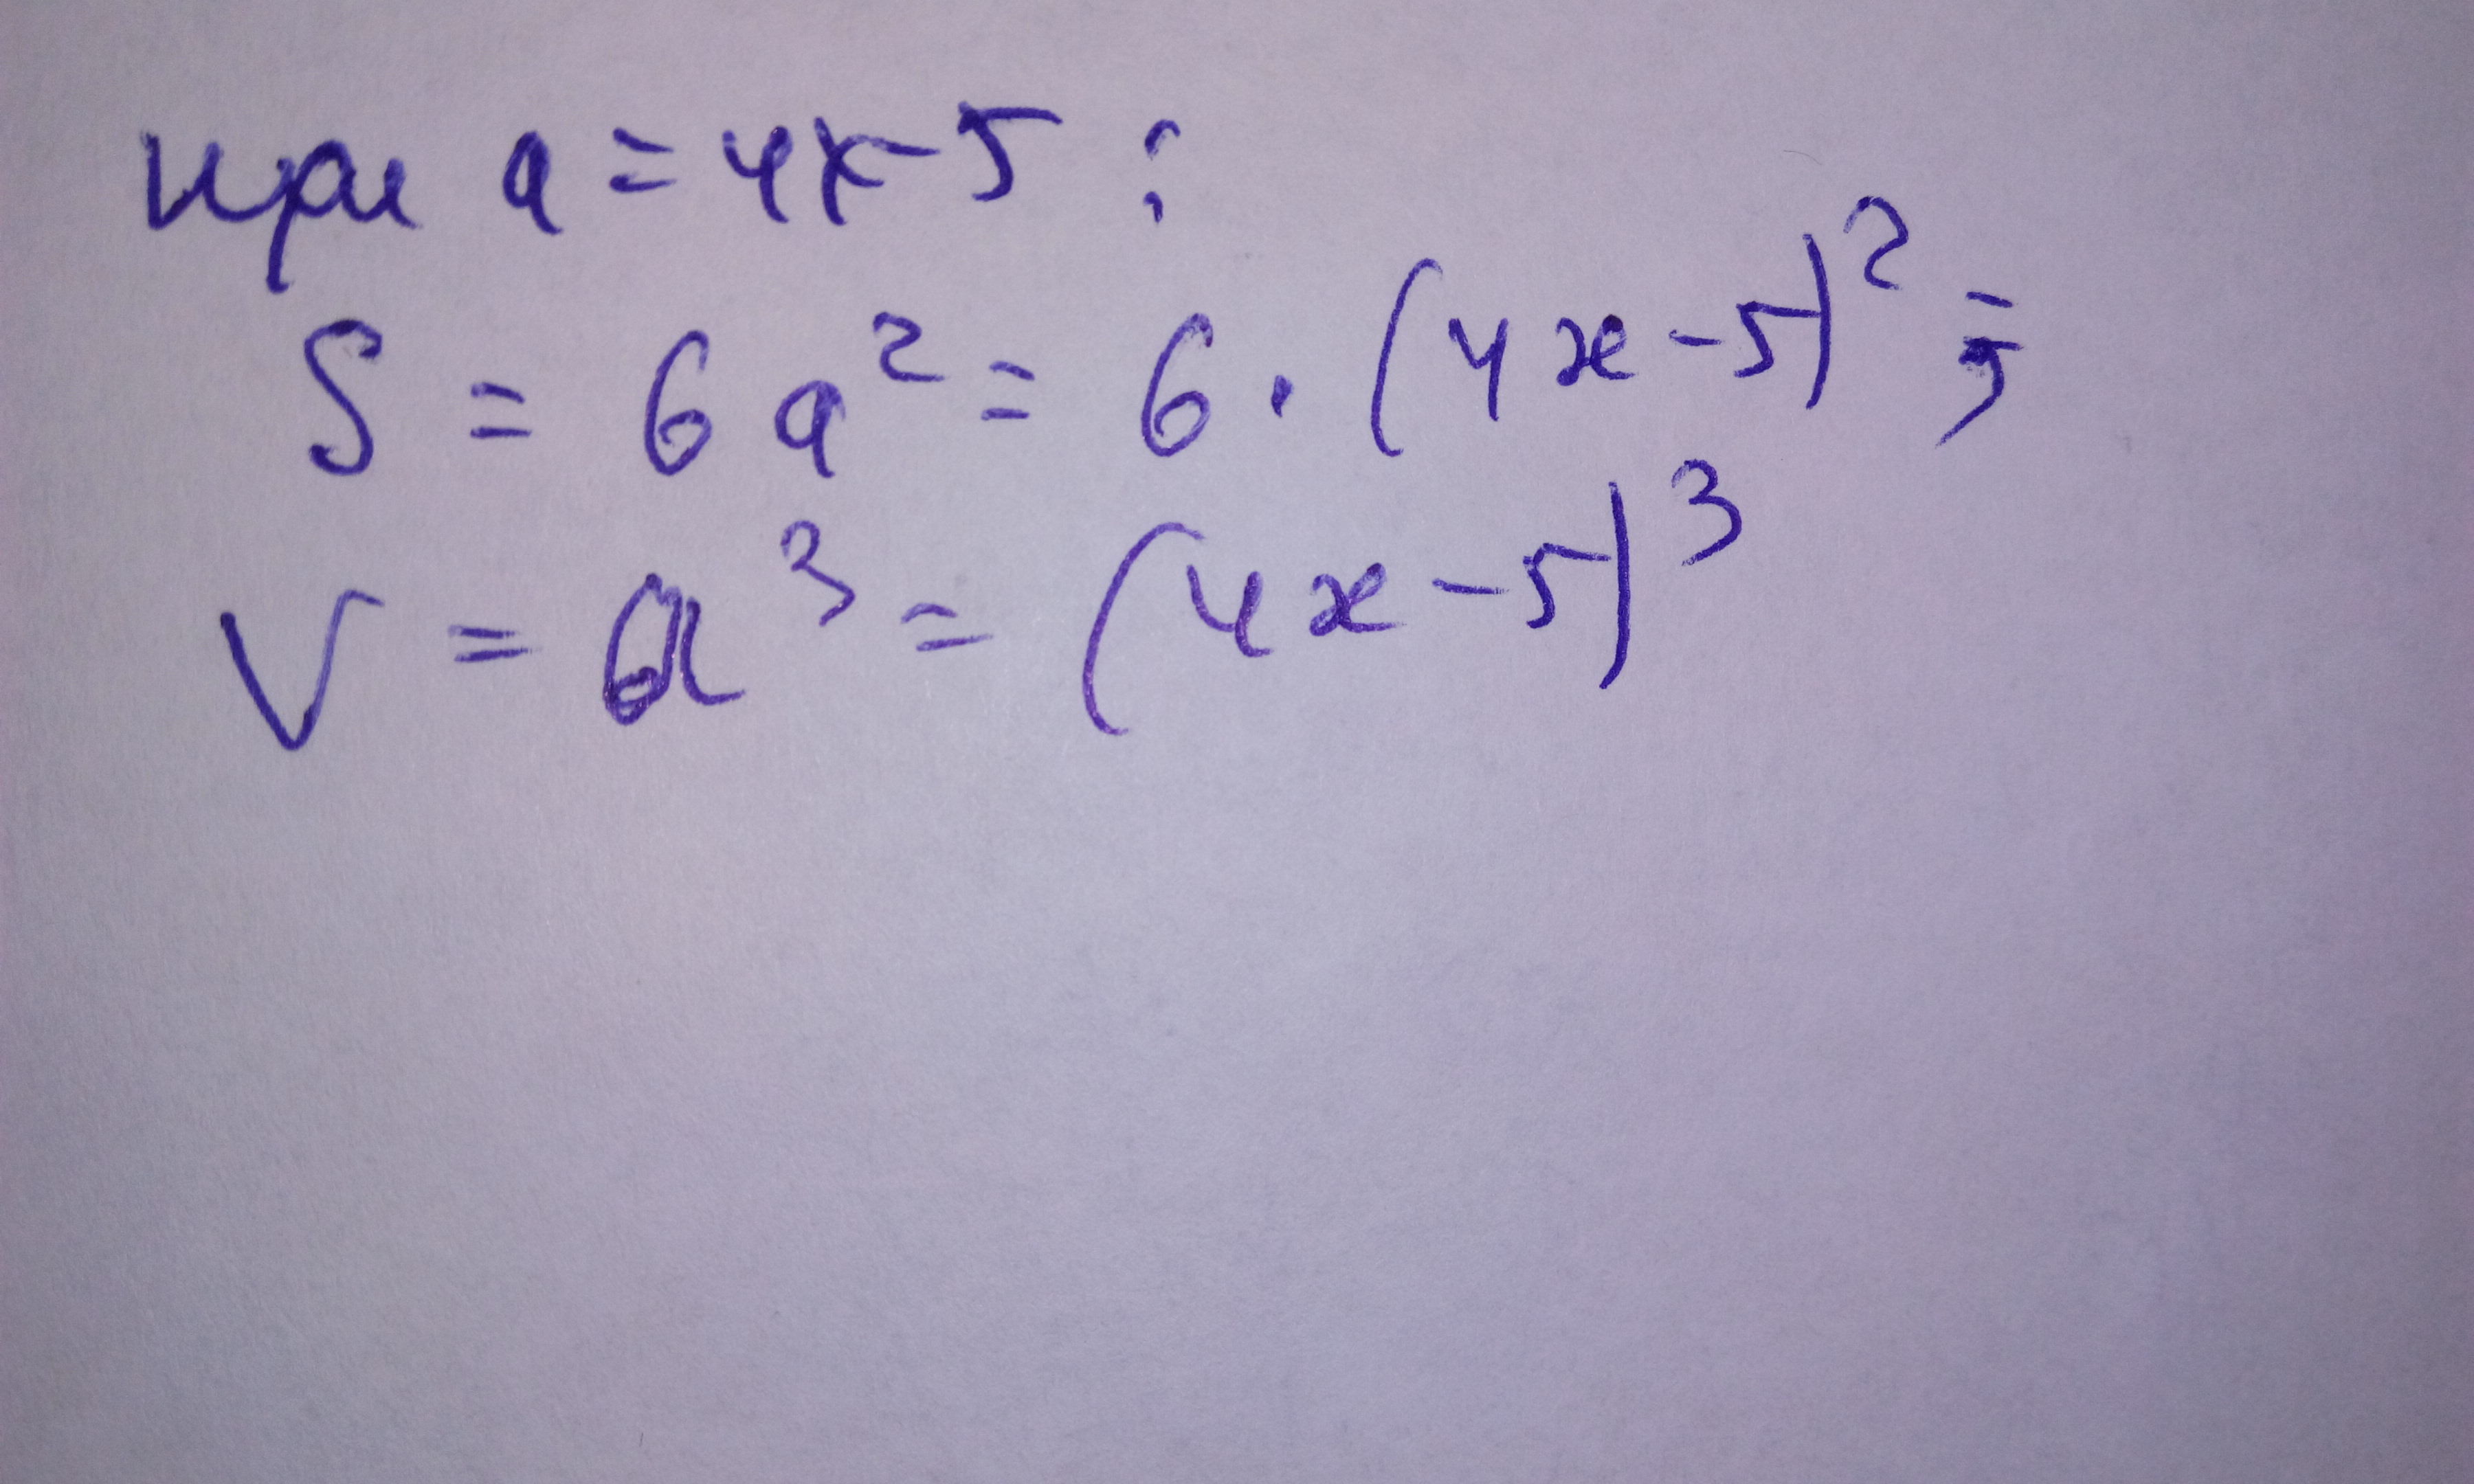 при a = 4x - 5 :
S = 6 a² = 6 · (4x - 5)² ;
V = a³ = (4x - 5)³